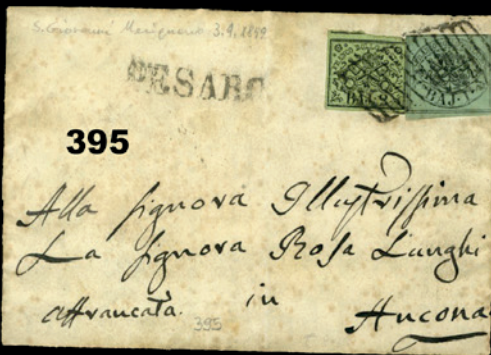 S. Giovanni Marignano 3.9.1852
PESARO
BAJ
BAJ
395
Alla Signora Illustrissima
La Signora Rosa Lunghi
affrancata. in Ancona
395